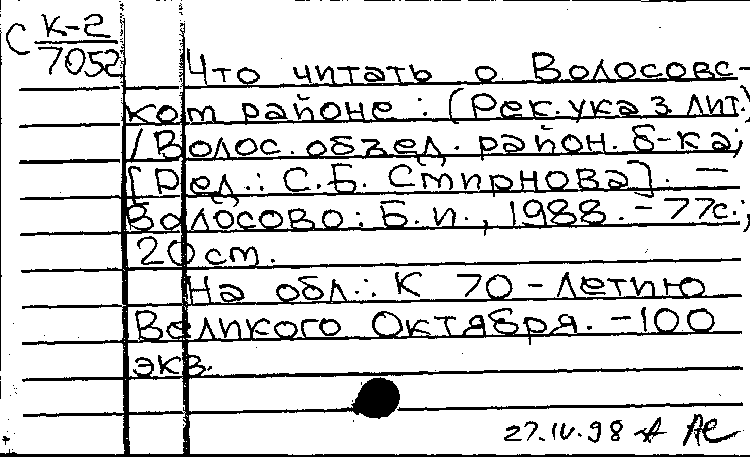 С К-2
7052
Что читать о Волосовс-
ком районе: (Рек. указ. лит.)
/ Волос. объед. район. б-ка;
[Ред.: С.Б. Смирнова]. —
Волосово: Б.и., 1988. - 77с.;
20 ст.
На обл.: К 70-летию
Великого Октября. - 100
экз.
27.IV.98